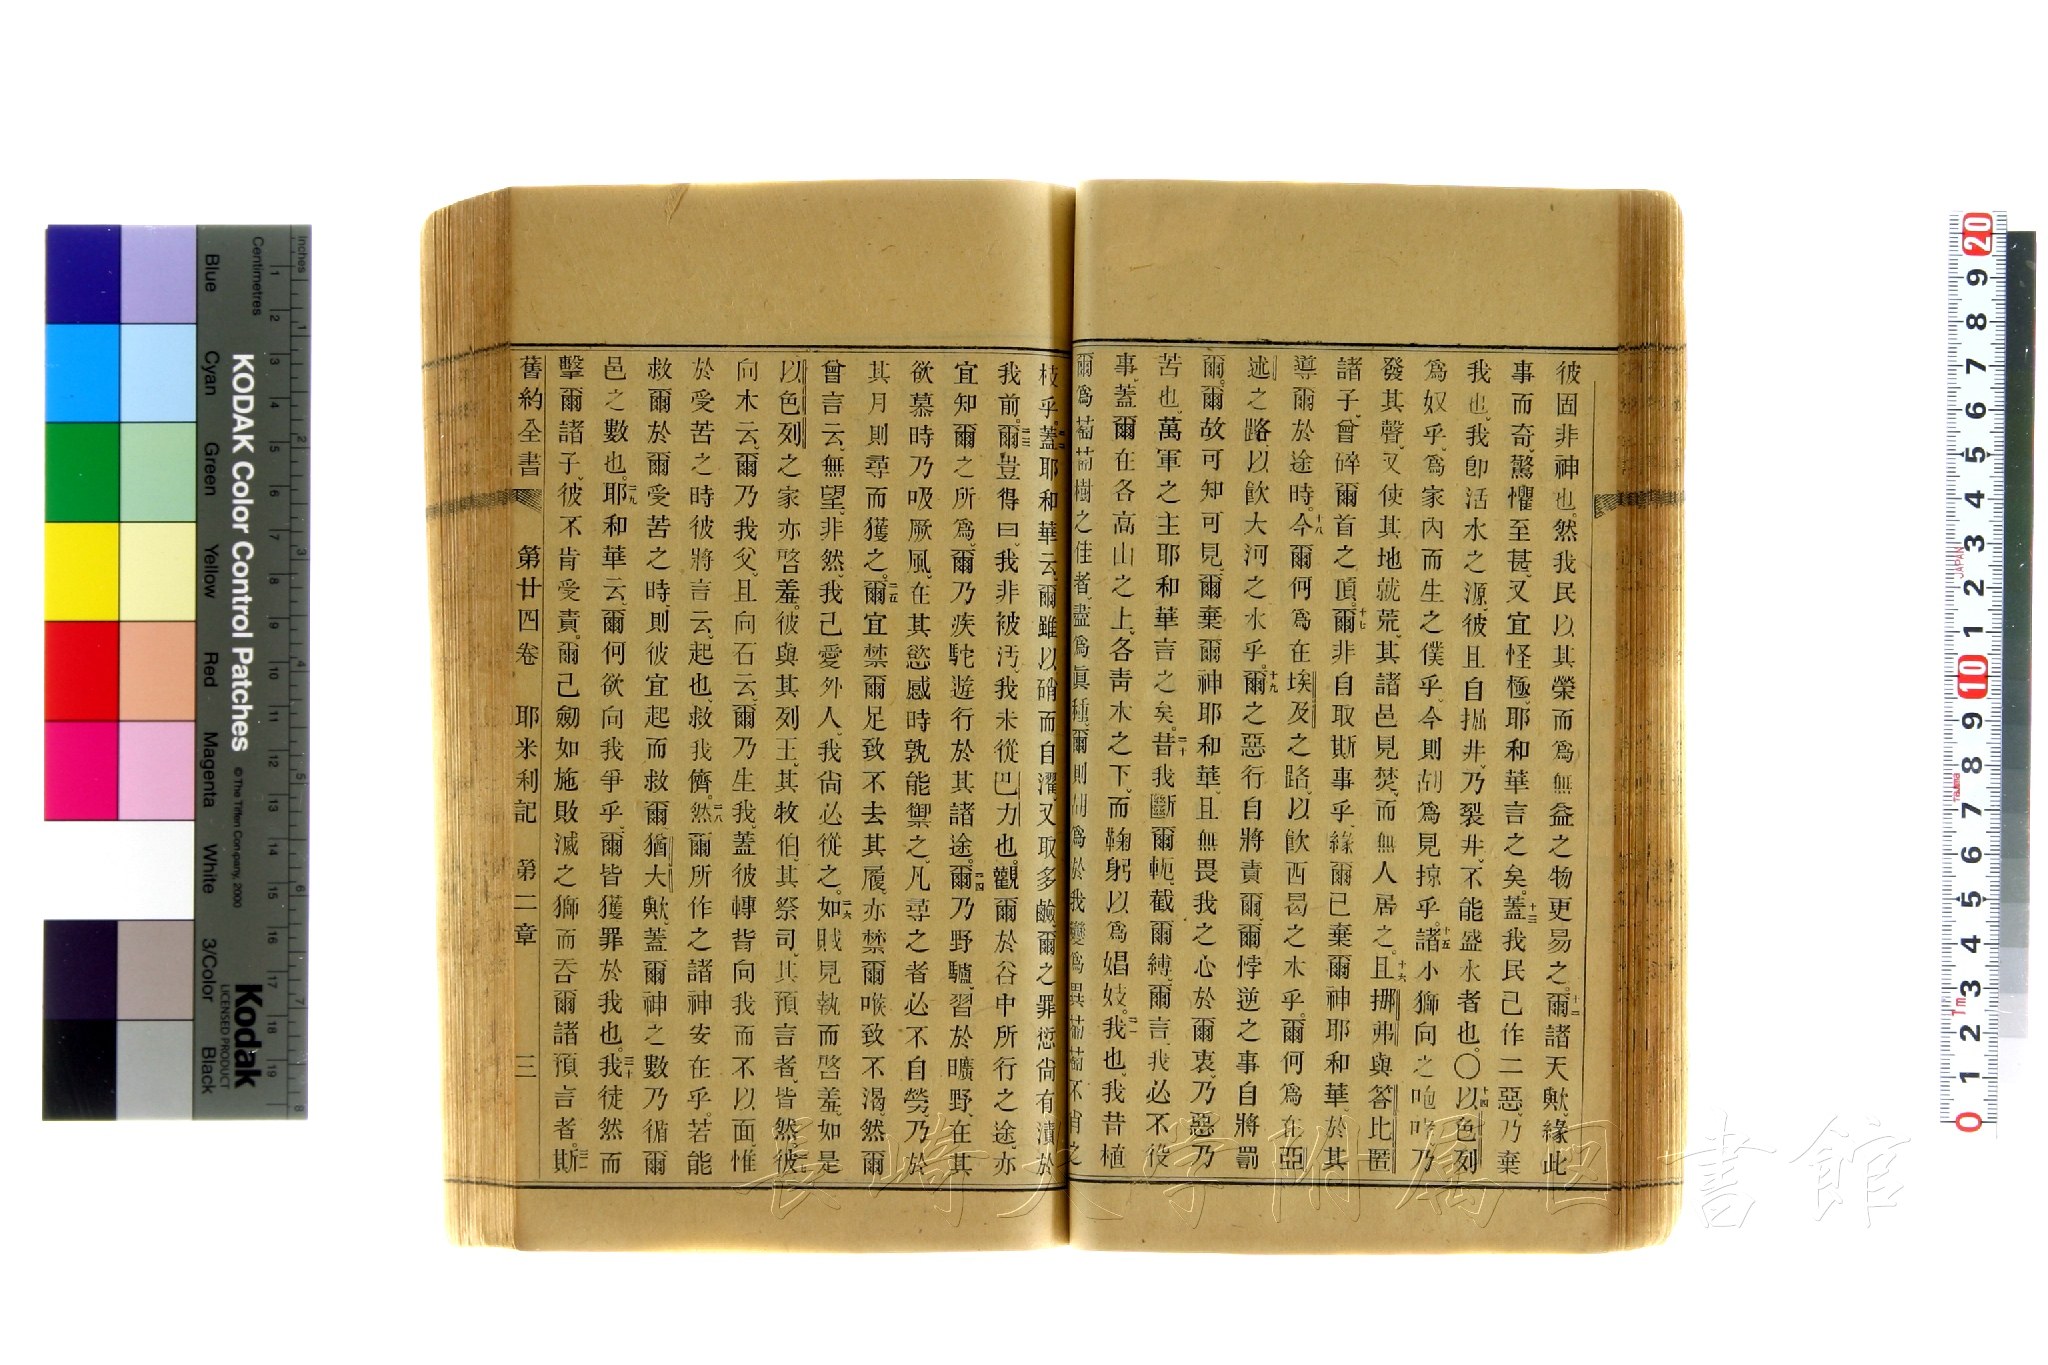 彼固非神也、然我民以其榮而爲無益之物更易之。十二爾諸天歟、緣此
事而奇、驚懼至甚、又宜怪極、耶和華言之矣。十三蓋我民己作二惡、乃棄
我也、我卽活水之源、彼且自掘井、乃裂井、不能盛水者也。〇十四以色列
爲奴乎、爲家內而生之僕乎、今則胡爲見掠乎。十五諸小獅向之咆哮乃
發其聲、又使其地就荒、其諸邑見焚、而無人居之。十六且挪弗與答比匿
諸子、曾碎爾首之頂。十七爾非自取斯事乎、緣爾已棄爾神耶和華、於其
導爾於途時。十八今爾何爲在埃及之路、以飮西曷之水乎、爾何爲在亞
述之路、以飮大河之水乎。十九爾之惡行自將責爾、爾悖逆之事自將罰
爾、爾故可知可見、爾棄爾神耶和華、且無畏我之心於爾衷、乃惡乃
苦也、萬軍之主耶和華言之矣。二十昔我斷爾軛、截爾縛、爾言、我必不役
事、蓋爾在各高山之上、各靑木之下、而鞠躬以爲娼妓。二一我也、我昔植
爾爲萄萄樹之佳者、盡爲眞種、爾則胡爲於我變爲異萄萄不肖之
枝乎。二二蓋耶和華云、爾雖以硝而自濯、又取多鹼、爾之罪愆尙有漬於
我前。二三爾豈得曰、我非被汚、我未從巴力也、觀爾於谷中所行之途、亦
宜知爾之所爲、爾乃疾駝遊行於其諸途。二四爾乃野驢、習於曠野、在其
欲慕時乃吸厥風、在其慾感時孰能禦之、凡尋之者必不自勞、乃於
其月則尋而獲之。二五爾宜禁爾足致不去其履、亦禁爾喉致不渴、然爾
曾言云、無望、非然、我己愛外人、我尙必從之。二六如賊見執而啓羞、如是
以色列之家亦啓羞。彼與其列王、其牧伯、其祭司、其預言者、皆然。二七彼
向木云、爾乃我父、且向石云、爾乃生我、蓋彼轉背向我而不以面、惟
於受苦之時彼將言云、起也、救我儕。二八然爾所作之諸神安在乎。若能
救爾於爾受苦之時、則彼宜起而救爾、猶大歟、蓋爾神之數乃循爾
邑之數也。二九耶和華云、爾何欲向我爭乎、爾皆獲罪於我也。三十我徒然而
擊爾諸子、彼不肯受責。爾己劒如施敗滅之獅而吞爾諸預言者。三一斯
舊約全書 第廿四卷 耶米利記 第二章 三
KODAK Color Control Patches
©The Tiffen Company, 2000
Kodak
LICENSED PRODUCT
Inches
Centimetres
Blue
Cyan
Green
Yellow
Red
Magenta
White
3/Color
Black
長崎大学附属図書館